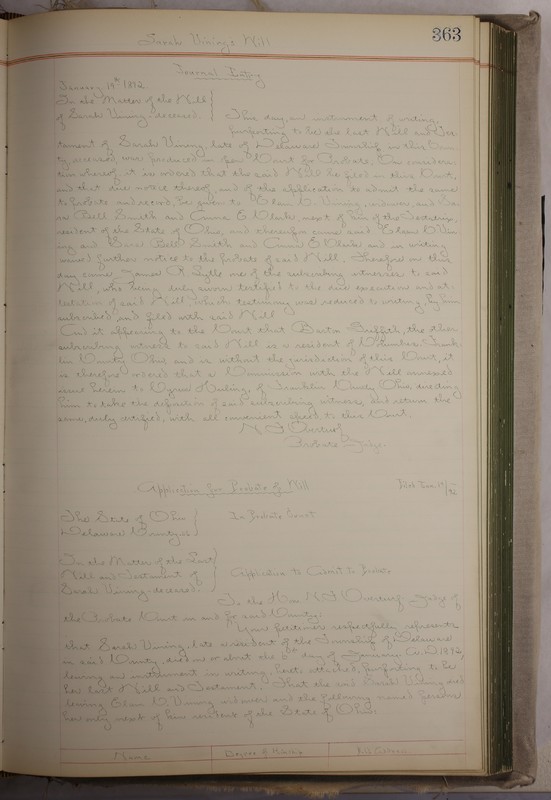 363
Sarah Vining's Will
Journal Entry
January 19th 1912
In the Matter of the Will
of Sarah Vining, deceased.
This day, an instrument of writing,
purporting to be the last Will and Tes-
tament of Sarah Vining late of Delaware Township in this Coun-
ty, deceased, was produced in open Court for Probate. On considera-
tion whereof, it is ordered that the said Will be filed in this Court,
and that due notice thereof, and of the application to admit the same
to probate and record, be given to Vining, widower, and
Bell Smith and E. next of kin of the Testatrix,
resident of the State of Ohio, and thereupon came said Vin-
ing and Bell Smith and E. and in writing
waived further notice to the Probate of said Will. Therefore on this
day came James R. Lytle one of the subscribing witnesses to said
Will, who being duly sworn testified to the due execution and at-
testation of said Will which testimony was reduced to writing by him
subscribed and filed with said Will.
And it appearing to the Court that Griffith, the other
subscribing witness to said Will is a resident of Columbus, Frank-
lin County Ohio and is without the jurisdiction of this Court, it
is therefore ordered that a Commission with the Will annexed
issue herein to Huling, of Franklin County Ohio, directing
him to take the deposition of said subscribing witness, and return the
same, duly certified, with all convenient speed to this Court.
Probate Judge.
Application for Probate of Will
Filed Jan.
The State of Ohio
Delaware County, ss
In Probate Court
In the Matter of the Last
Will and Testament of
Sarah Vining, deceased.
Application to Admit to Probate
To the Hon. Judge of
the Probate Court in and for said County:
Your petitioner respectfully represents
that Sarah Vining, late a resident of the Township of Delaware
in said County, died on or about the day of January A.D. 1912,
leaving an instrument in writing, hereto attached, purporting to be
her last Will and Testament; That the said Sarah Vining died
leaving Vining widower and the following named persons
her only next of kin resident of the State of Ohio,
Name
Degree of Kinship
P.O. Address